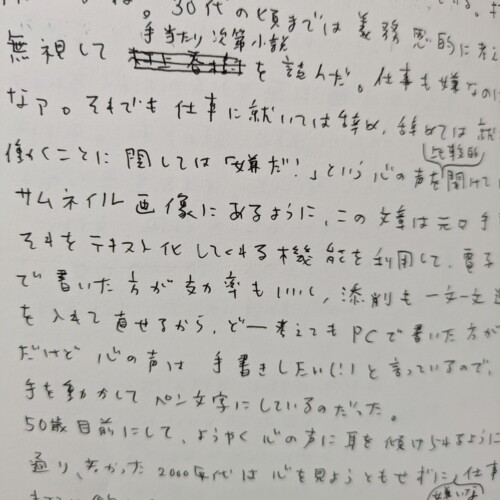 。30代の頃までは義務感的に考え
手当たり次第小説
無視して 村上春樹 を読んだ。仕事も嫌なのに
なア。それでも仕事に就いては辞め、辞めては就
比較的
働くことに関しては「嫌だ!」という心の声を聞けてい
サムネイル画像にあるように、この文章は元々手
それをテキスト化してくれる機能を利用して、電子
で書いた方が効率もいいし、添削も一文一文
を入れて直せるから、どー考えてもPCで書いた方が
だけど心の声は手書きしたい(!)と言っているので、
手を動かしてペン文字にしているのだった。
50歳目前にして、ようやく心の声に耳を傾けられるように
通り、若かった2000年代は心を見ようともせずに、仕事
嫌いな